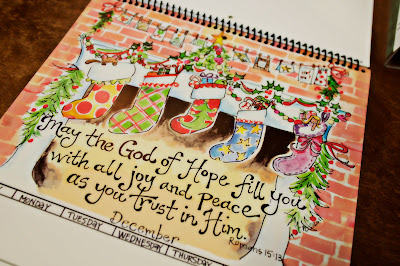 May the God of Hope fill you
with all joy and Peace
as you Trust in Him.
Romans 15:13
December
MONDAY
TUESDAY
WEDNESDAY
THURSDAY